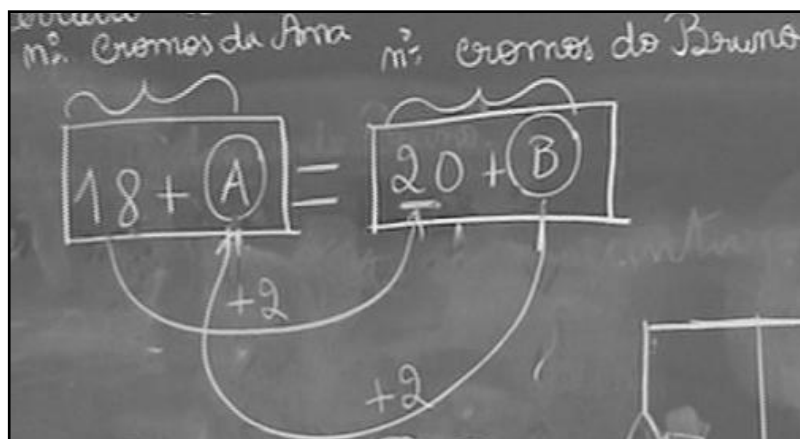 nº. cromos da Ana nº. cromos do Bruno
18 + A = 20 + B
+2
+2